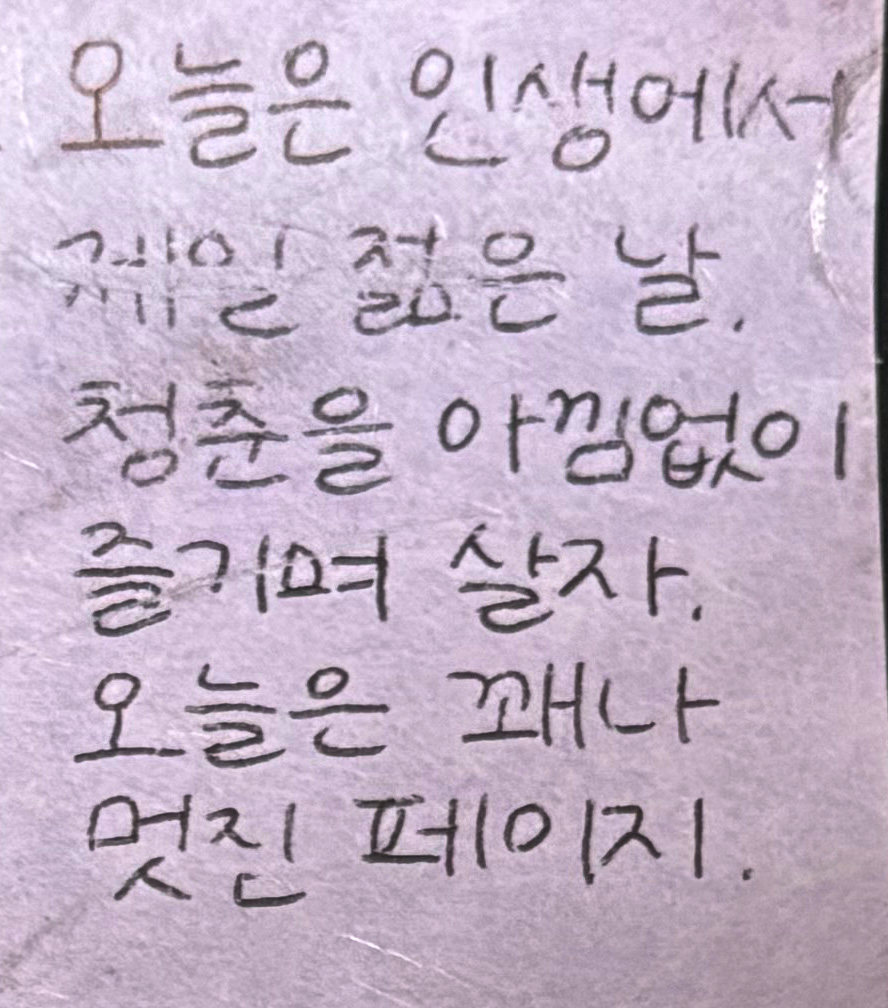 오늘은 인생에서
제일 젊은 날.
청춘을 아낌없이
즐기며 살자.
오늘은 꽤나
멋진 페이지.